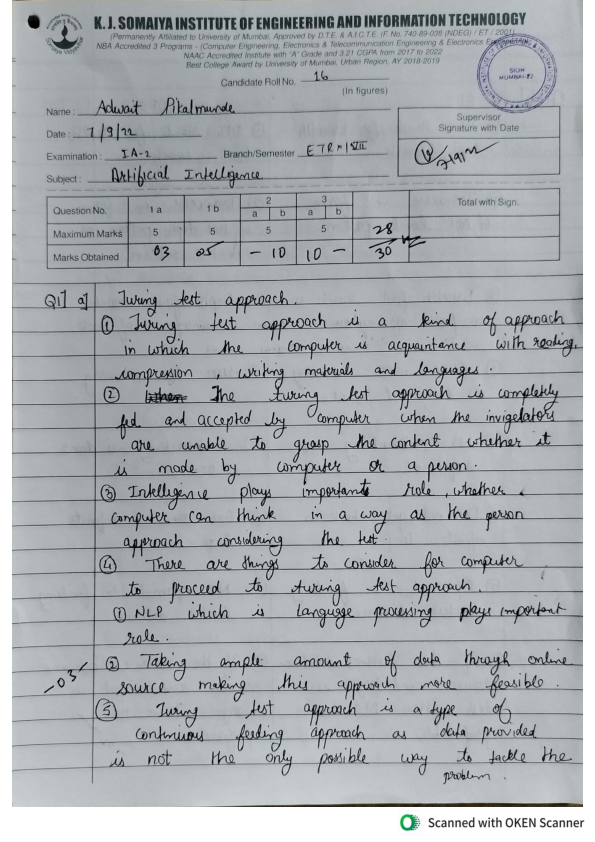 K. J. SOMAIYA INSTITUTE OF ENGINEERING AND INFORMATION TECHNOLOGY
(Permanently Affiliated to University of Mumbai, Approved by D.T.E. & A.I.C.T.E. (F. No. 740-89-036 (NDEG) / ET / 2001)
NBA Accredited 3 Programs - (Computer Engineering, Electronics & Telecommunication Engineering & Electronics
NAAC Accredited Institute with "A" Grade and 3.21 CGPA from 2017 to 2022
Best College Award by University of Mumbai, Urban Region, AY 2018-2019
Candidate Roll No. 16
(In figures)
Name : Adwait Pikalmunde
Date : 7/9/22
Supervisor
Signature with Date
Examination : IA-2 Branch/Semester ETRX/VII
Subject : Artificial Intelligence
Question No. 1 a 1 b 2 a b 3 a b Total with Sign.
Maximum Marks 5 5 5 5 28
Marks Obtained 03 05 - 10 10 - 30
Q1] a] Turing test approach.
① Turing test approach is a kind of approach
in which the computer is acquaintance with reading,
compression, writing materials and languages.
② The turing test approach is completely
fed and accepted by computer when the invigelators
are unable to grasp the content whether it
is made by computer or a person.
③ Intelligence plays important role, whether
computer can think in a way as the person
approach considering the test.
④ There are things to consider for computer
to proceed to turing test approach.
① NLP which is language processing plays important
role.
② Taking ample amount of data through online
source making this approach more feasible.
-03-
⑤ Turing test approach is a type of
continuous feeding approach as data provided
is not the only possible way to tackle the
problem.
Scanned with OKEN Scanner